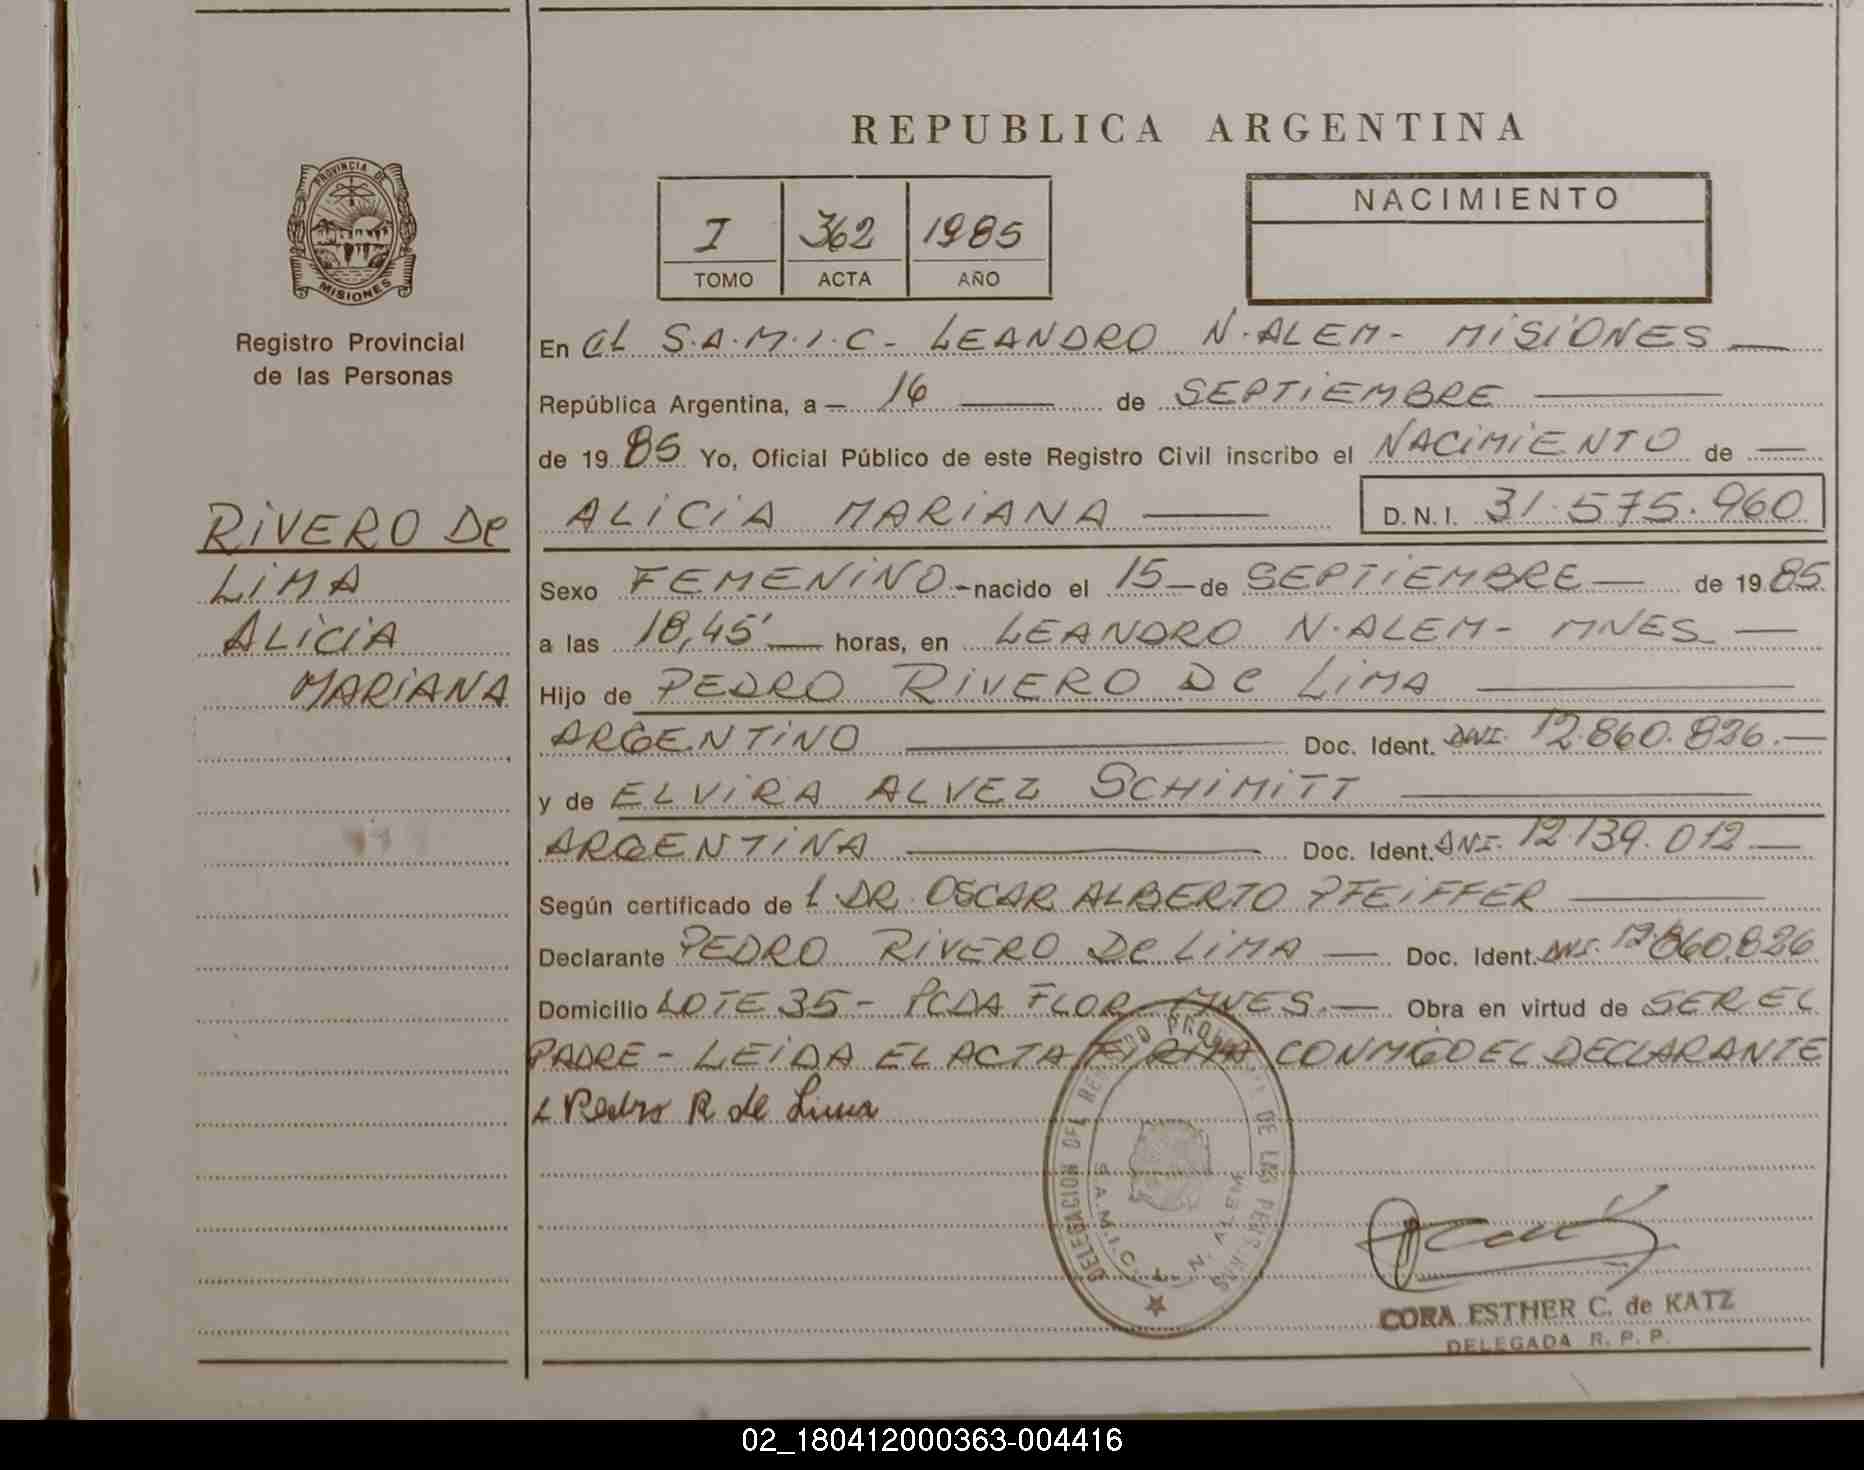 REPUBLICA ARGENTINA
PROVINCIA DE
MISIONES
Registro Provincial
de las Personas
I 362 1985
TOMO ACTA AÑO
NACIMIENTO
RIVERO De
LIMA
ALICIA
MARIANA
En el S.A.M.I.C- LEANDRO N.ALEM- MISIONES
República Argentina, a - 16 de SEPTIEMBRE
de 1985 Yo, Oficial Público de este Registro Civil inscribo el NACIMIENTO de
ALICIA MARIANA D.N.I. 31.575.960
Sexo FEMENINO - nacido el 15 de SEPTIEMBRE de 1985
a las 18,45' horas, en LEANDRO N.ALEM- MNES
Hijo de PEDRO RIVERO De LIMA
ARGENTINO Doc. Ident. DNI. 12.860.826.
y de ELVIRA ALVEZ SCHIMITT
ARGENTINA Doc. Ident. DNI. 12.139.012
Según certificado de l DR. OSCAR ALBERTO PFEIFFER
Declarante PEDRO RIVERO De LIMA Doc. Ident. DNI. 12.860.826
Domicilio LOTE 35- PCDA FLOR MNES. Obra en virtud de SER EL
PADRE - LEIDA EL ACTA FIRMA CONMIGO EL DECLARANTE
Pedro R de Lima
DELEGACION DEL REGISTRO PROVINCIAL DE LAS PERSONAS
S.A.M.I.C. L. N. ALEM
CORA ESTHER C. de KATZ
DELEGADA R. P. P.
02_180412000363-004416